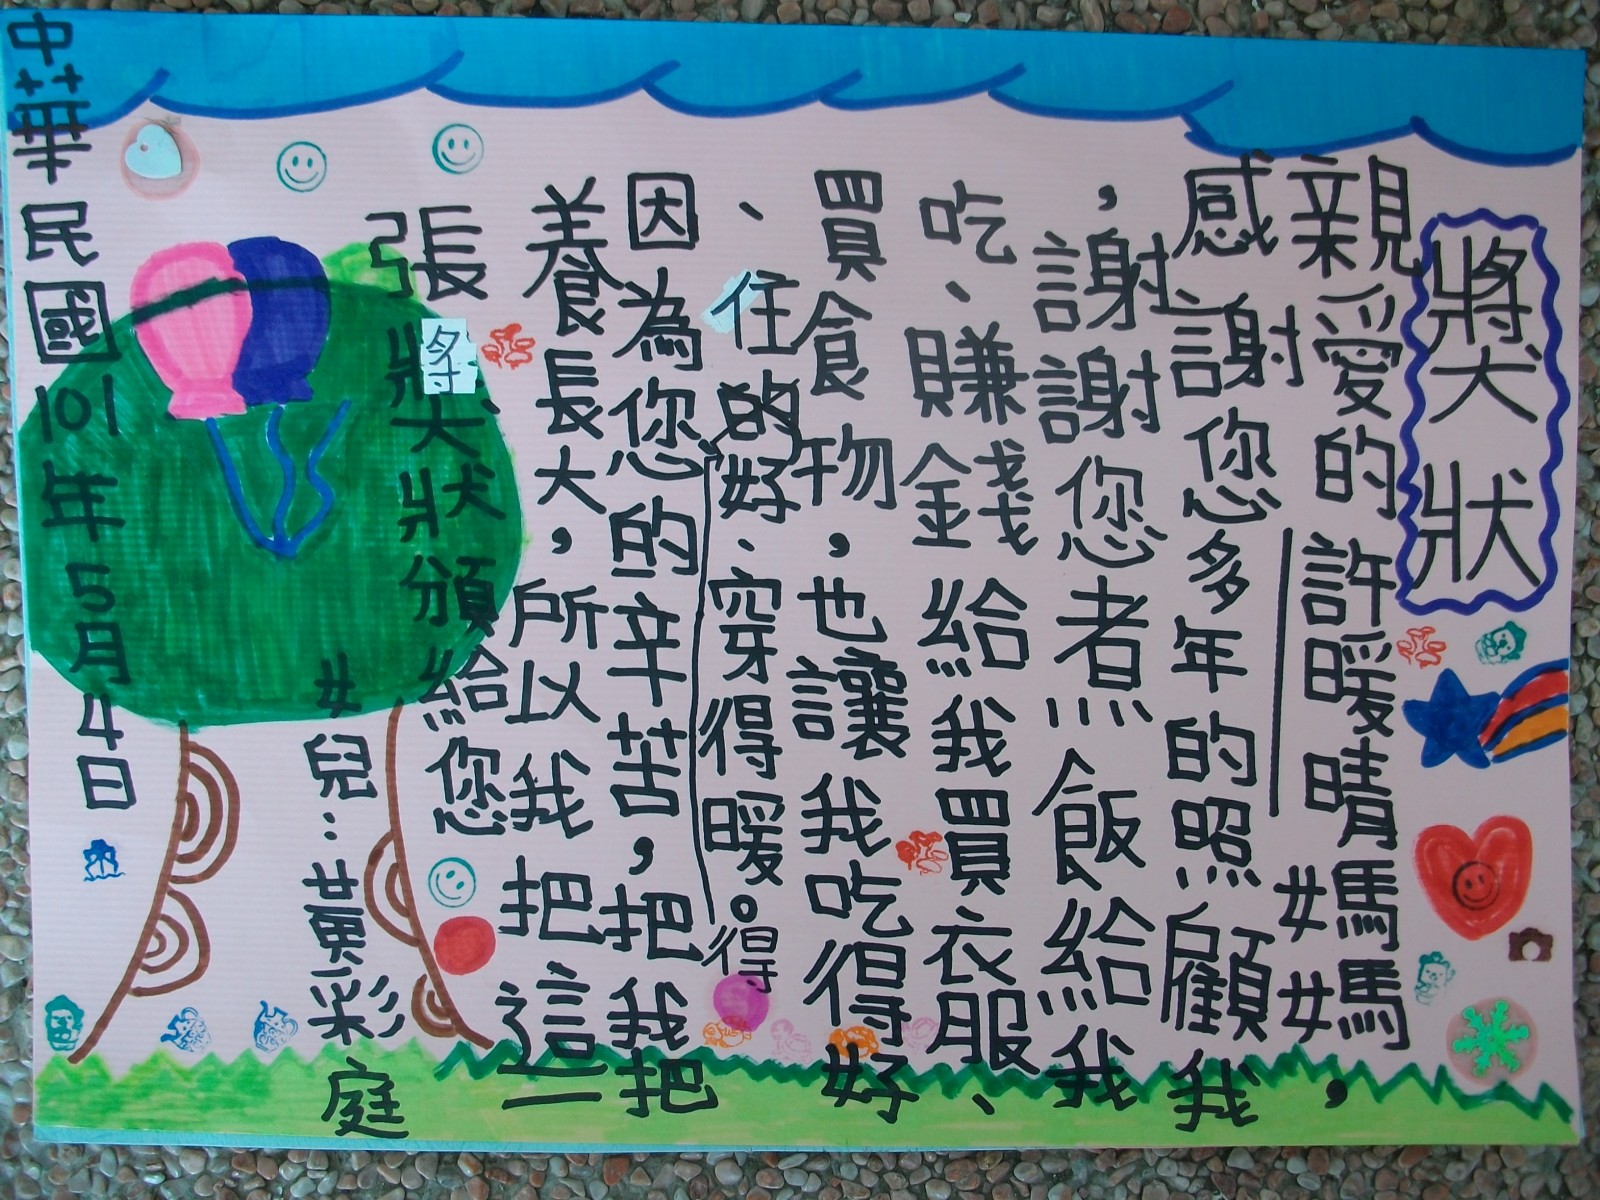 獎狀
親愛的許暖晴媽媽，
感謝您多年的照顧我
，謝謝您煮飯給我
吃、賺錢給我買衣服、
買食物，也讓我吃得好
、住得好、穿得暖。
因為您的辛苦，把我把
養長大，所以我把這一
張獎狀頒給您
女兒：黃彩庭
中華民國101年5月4日